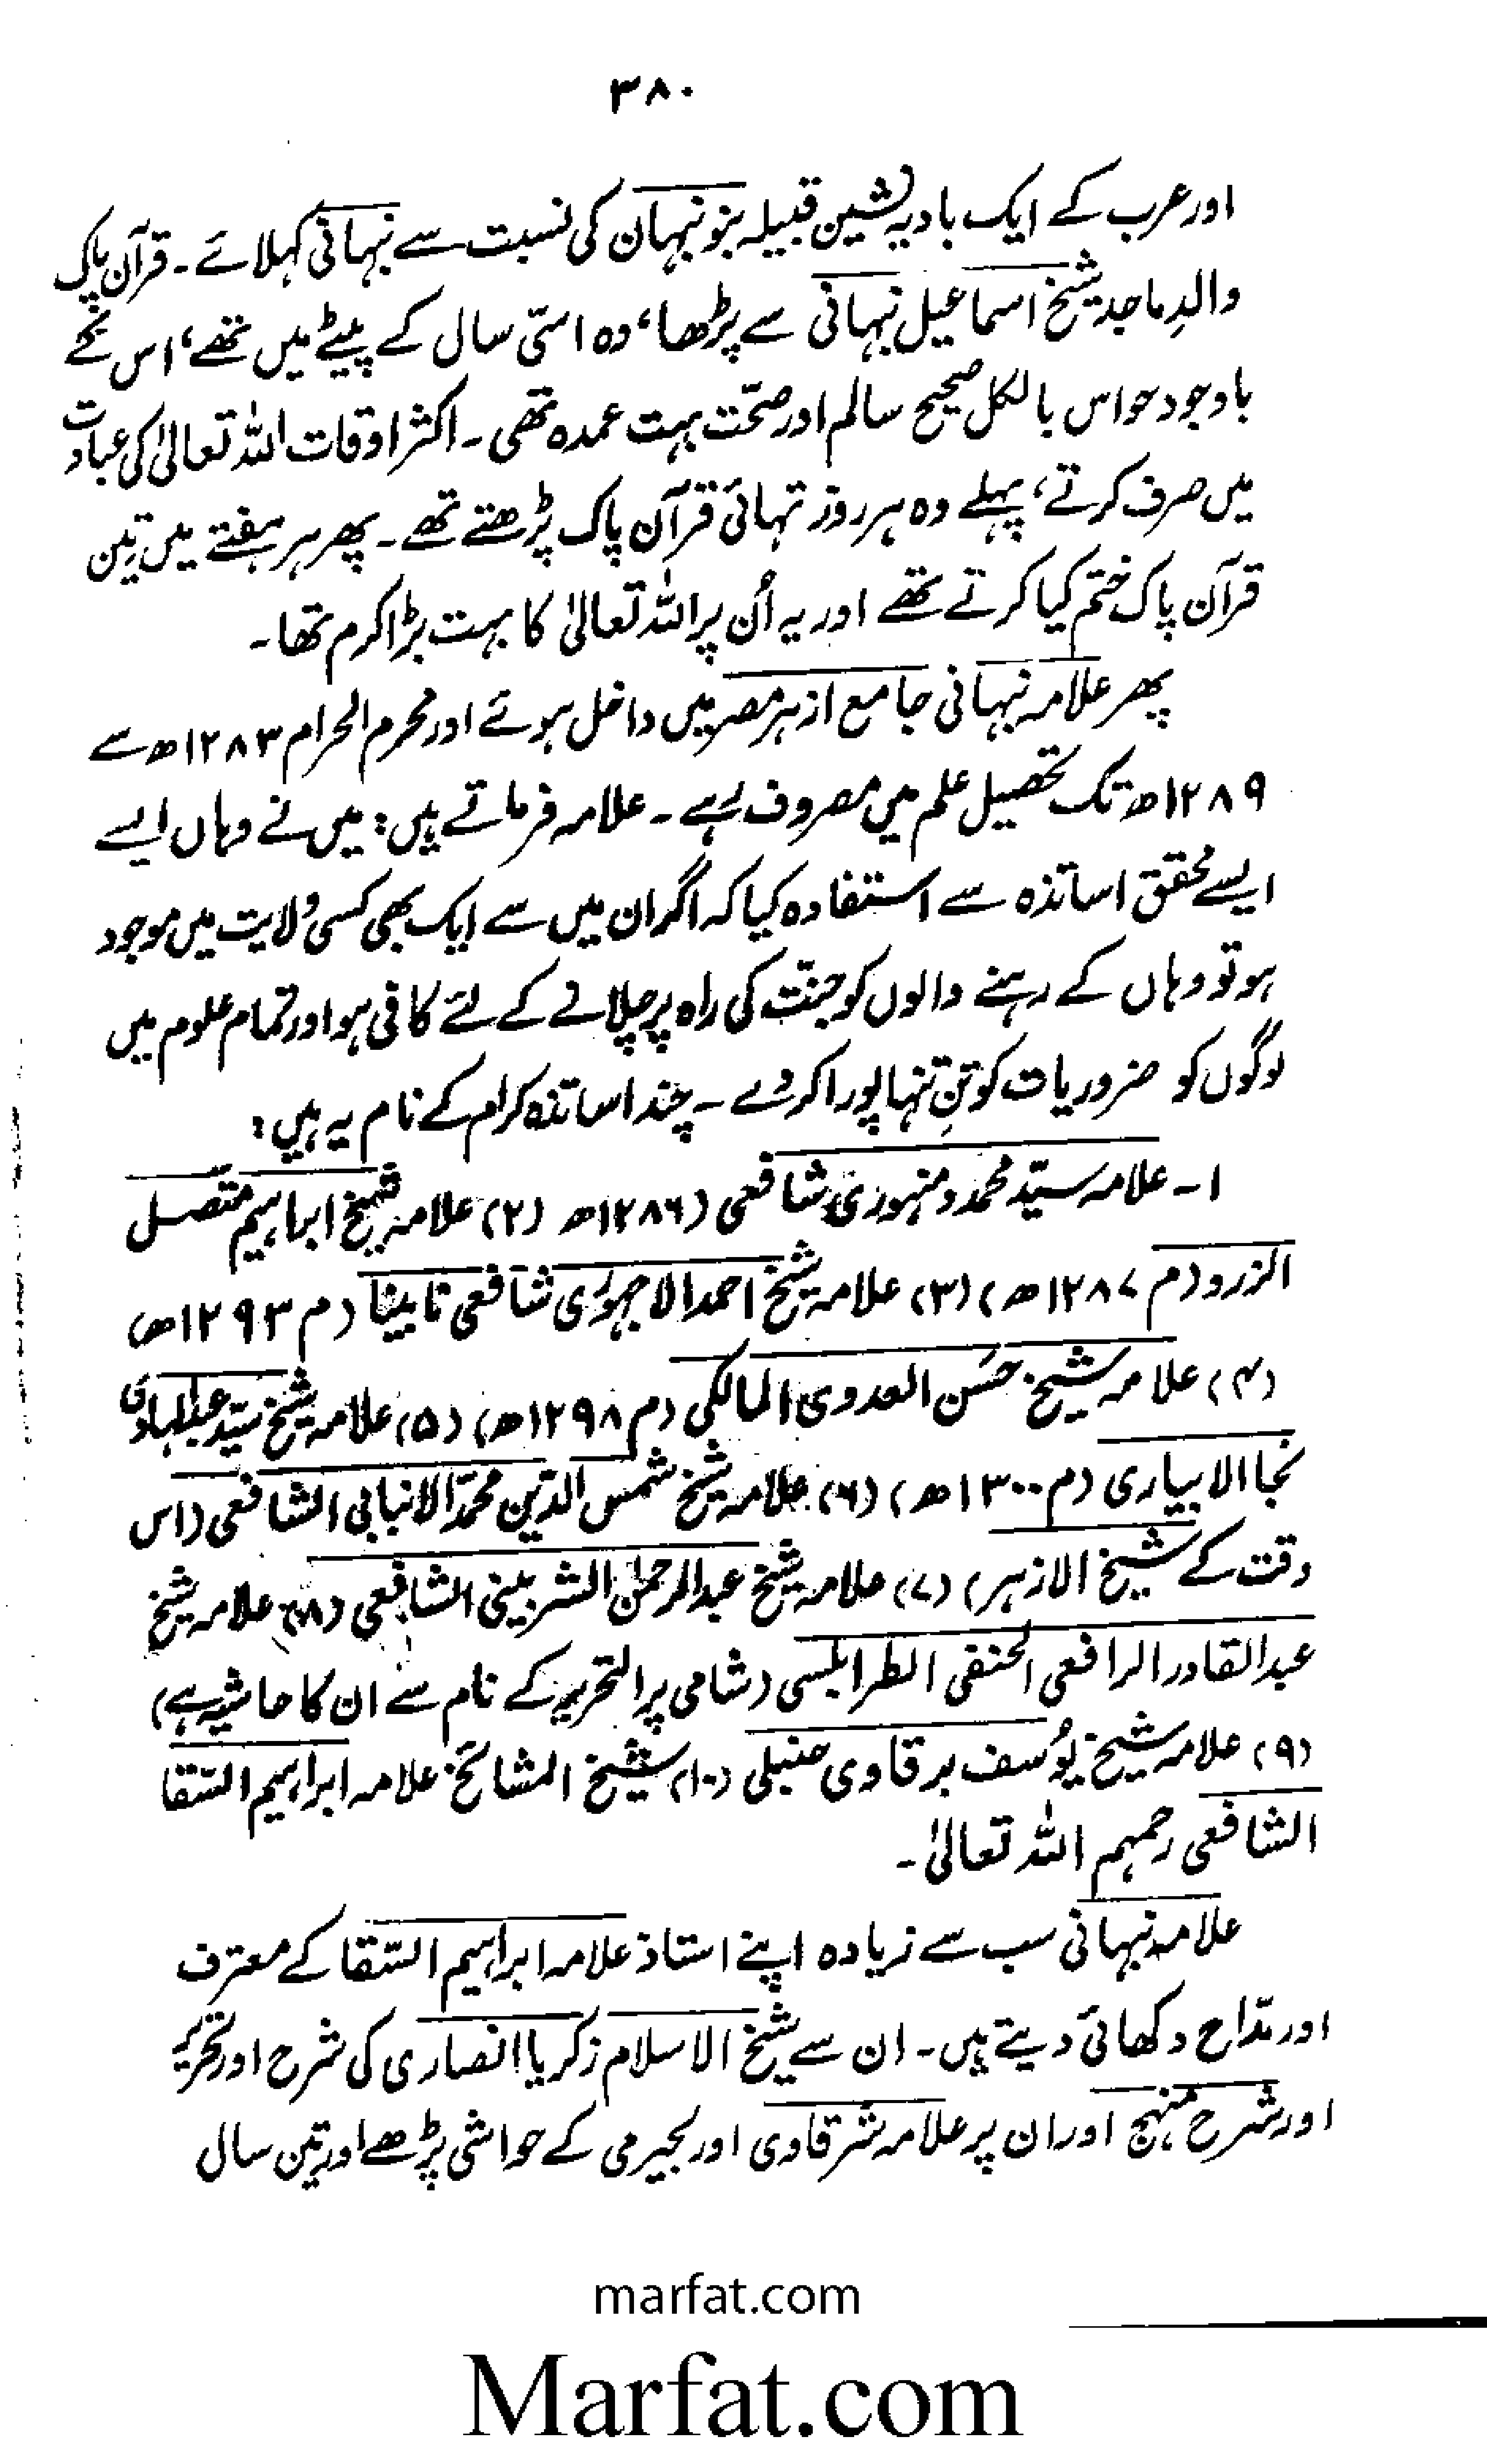 ۳۸۰
اور عرب کے ایک بادیہ نشین قبیلہ بنو نبہان کی نسبت سے نبہانی کہلائے۔ قرآن پاک
والدِ ماجد شیخ اسماعیل نبہانی سے پڑھا، وہ اسّی سال کے پیٹے میں تھے، اس کے
باوجود حواس بالکل صحیح سالم اور صحّت بہت عمدہ تھی۔ اکثر اوقات اللہ تعالیٰ کی عبادت
میں صرف کرتے، پہلے وہ ہر روز تہائی قرآن پاک پڑھتے تھے۔ پھر ہر ہفتے میں تین
قرآن پاک ختم کیا کرتے تھے اور یہ اُن پر اللہ تعالیٰ کا بہت بڑا کرم تھا۔
پھر علامہ نبہانی جامع ازہر مصر میں داخل ہوئے اور محرم الحرام ۱۲۸۳ھ سے
۱۲۸۹ھ تک تحصیل علم میں مصروف رہے۔ علامہ فرماتے ہیں: میں نے وہاں ایسے
ایسے محقق اساتذہ سے استفادہ کیا کہ اگر ان میں سے ایک بھی کسی ولایت میں موجود
ہو تو وہاں کے رہنے والوں کو جنّت کی راہ پر چلانے کے لئے کافی ہو اور تمام علوم میں
لوگوں کو ضروریات کو تنِ تنہا پورا کر دے۔ چند اساتذہ کرام کے نام یہ ہیں:
۱۔ علامہ سیّد محمد دمنہوری شافعی (۱۲۸۶ھ (۲) علامہ شیخ ابراہیم متّصل
الزرو (م ۱۲۸۷ھ) (۳) علامہ شیخ احمد الاجہوری شافعی نابینا (م ۱۲۹۳ھ)
(۴) علامہ شیخ حسَن العدوی المالکی (م ۱۲۹۸ھ) (۵) علامہ شیخ سیّد عبدالہادی
نجا الابیاری (م ۱۳۰۰ھ) (۶) علامہ شیخ شمس الدّین محمّد الانبابی الشافعی (اس
وقت کے شیخ الازہر) (۷) علامہ شیخ عبدالرحمٰن الشربینی الشافعی (۸) علامہ شیخ
عبدالقادر الرافعی الحنفی الطرابلسی (شامی پر التحریر کے نام سے ان کا حاشیہ ہے)
(۹) علامہ شیخ یوُسف برقاوی حنبلی (۱۰) شیخ المشائخ علامہ ابراہیم السّقا
الشافعی رحمہم اللہ تعالیٰ۔
علامہ نبہانی سب سے زیادہ اپنے استاذ علامہ ابراہیم السّقا کے معترف
اور مدّاح دکھائی دیتے ہیں۔ ان سے شیخ الاسلام زکریا انصاری کی شرح اور تحریر
اور شرح منہج اور ان پر علامہ شرقاوی اور بجیرمی کے حواشی پڑھے اور تین سال
marfat.com
Marfat.com